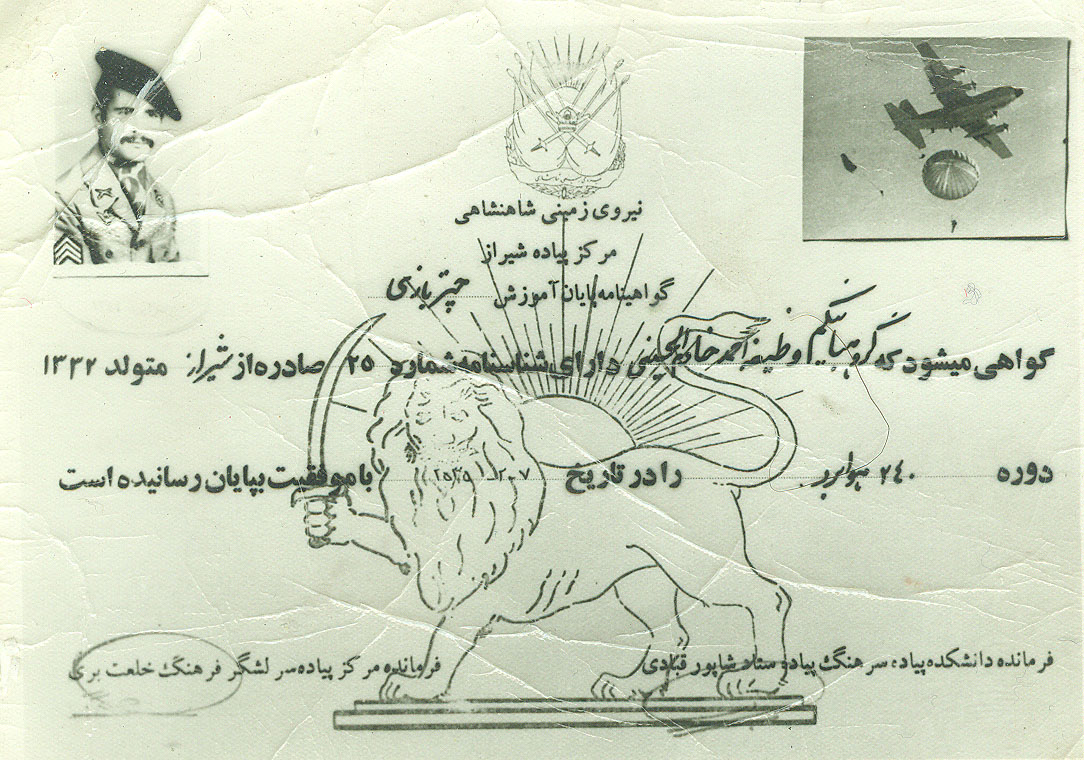 نیروی زمینی شاهنشاهی
مرکز پیاده شیراز
گواهینامه پایان آموزش چتربازی
گواهی میشود که گروهبانیکم وظیفه احمد دارای شناسنامه شماره ۲۵ صادره از شیراز متولد ۱۳۳۲
دوره ۲۴۰ هوابرد را در تاریخ با موفقیت بپایان رسانیده است
فرمانده دانشکده پیاده سرهنگ پیاده ستاد شاپور قبادی
فرمانده مرکز پیاده سرلشگر فرهنگ خلعت بری